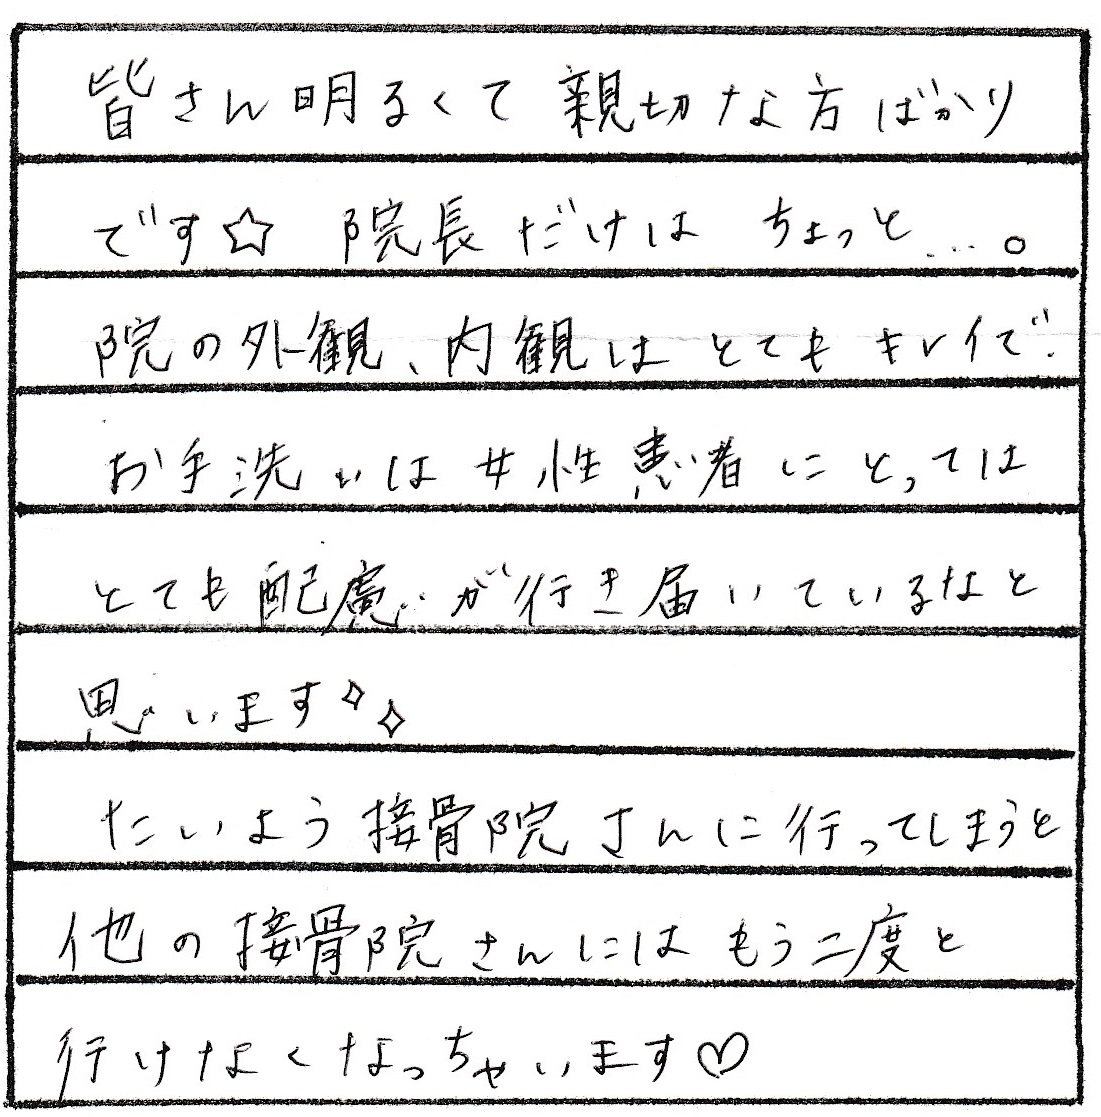 皆さん明るくて親切な方ばかり
です☆ 院長だけは ちょっと…。
院の外観、内観はとてもキレイで
お手洗いは女性患者にとっては
とても配慮が行き届いているなと
思います✧✧
たいよう接骨院さんに行ってしまうと
他の接骨院さんにはもう二度と
行けなくなっちゃいます♡